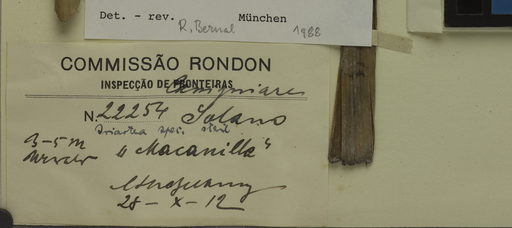 Det. - rev. R. Bernal München 1988
COMMISSÃO RONDON
INSPECÇÃO DE FRONTEIRAS
N. 22254 Solano
Iriartea spec. steril.
3-5 m "Macanilla"
28-X-12